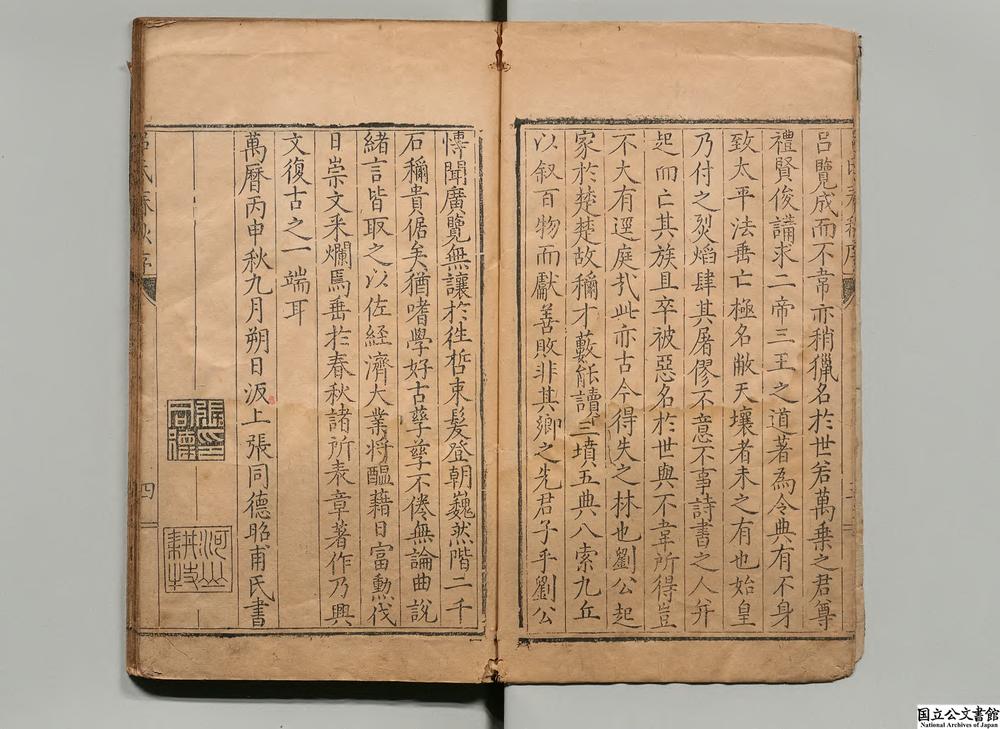 呂覽成而不韋亦稍獵名於世若萬乗之君尊
禮賢俊講求二帝三王之道著為令典有不身
致太平法垂亡極名敝天壤者未之有也始皇
乃付之烈熖肆其屠僇不意不事詩書之人并
起而亡其族且卒被惡名於世與不韋所得豈
不大有逕庭㢤此亦古今得失之林也劉公起
家於楚楚故稱才藪能讀三墳五典八索九丘
以叙百物而獻善敗非其鄉之先君子乎劉公
愽聞廣覽無讓於徃哲束髮登朝巍然階二千
石稱貴倨矣猶嗜學好古孳孳不倦無論曲說
緒言皆取之以佐經濟大業将醞藉日富勲伐
日崇文采爛焉垂於春秋諸所表章著作乃興
文復古之一端耳
萬曆丙申秋九月朔日汳上張同德昭甫氏書
呂氏春秋序
四
張同德印
国立公文書館
National Archives of Japan